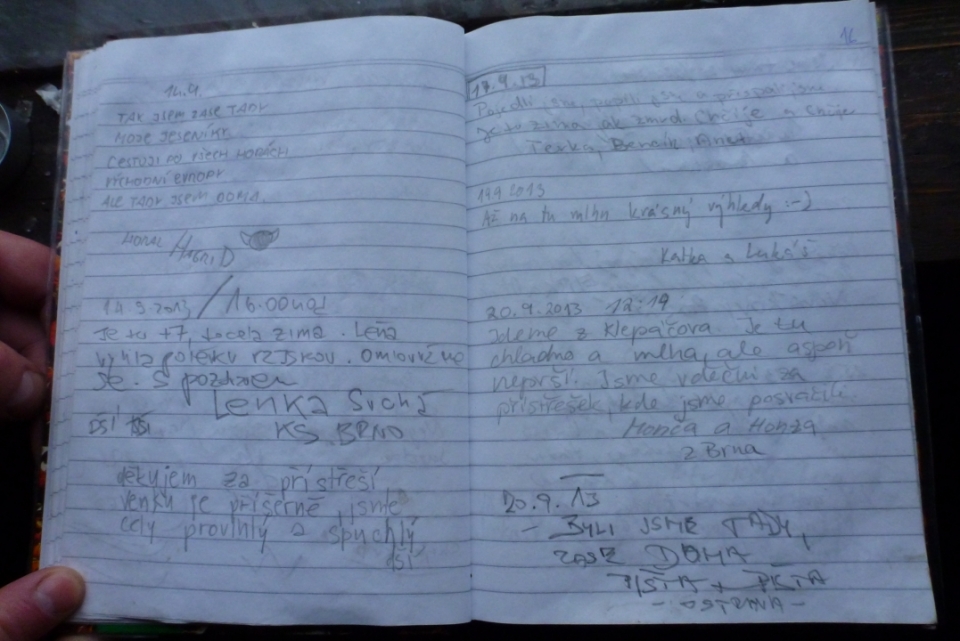 14.9.
TAK JSEM ZASE TADY
MOJE JESENÍKY
CESTUJI PO VŠECH HORÁCH
VÝCHODNÍ EVROPY
ALE TADY JSEM DOMA.
14.9.2013 / 16.00 hod
Je tu +7, docela zima. Lenka
polévku z . Omlouváme
se. S pozdravem
Lenka Suchá
KS BRNO
děkujem za přístřeší
venku je příšerně, jsme
celý provlhlý a spuchlý
16
17.9.13
Pojedli jsme, a přespali jsme
Je tu zima
Terka,
19.9.2013
Až na tu mlhu krásný výhledy :-)
Katka a Lukáš
20.9.2013 12:19
Jdeme z Klepáčova. Je tu
chladno a mlha, ale aspoň
neprší. Jsme vděční za
přístřešek, kde jsme posvačili
Honča a Honza
z Brna
20.9.13
- BYLI JSME TADY,
ZASE DOMA
- OSTRAVA -